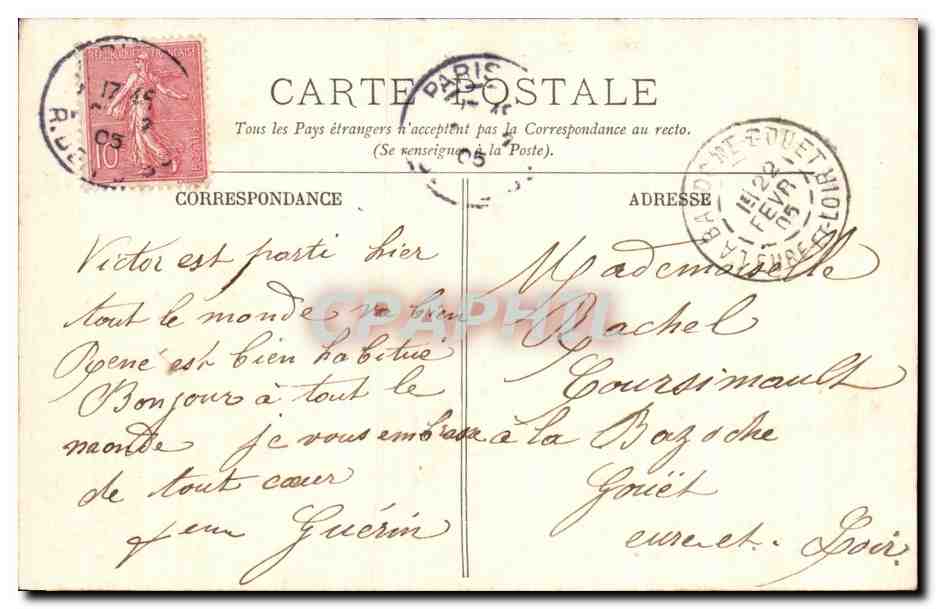 CARTE POSTALE
Tous les Pays étrangers n'acceptent pas la Correspondance au recto.
(Se renseigner à la Poste).
REPUBLIQUE FRANÇAISE
10
PARIS
17 45
05
PARIS
05
22
FEVR
05
EURE-ET-LOIR
CORRESPONDANCE
Victor est parti hier
tout le monde va bien
René est bien habitué
Bonjour à tout le
monde je vous embrasse
de tout cœur
Guérin
ADRESSE
Mademoiselle
Rachel
Coursimault
à la Bazoche
Gouët
eure-et-Loir
CPAPHIL